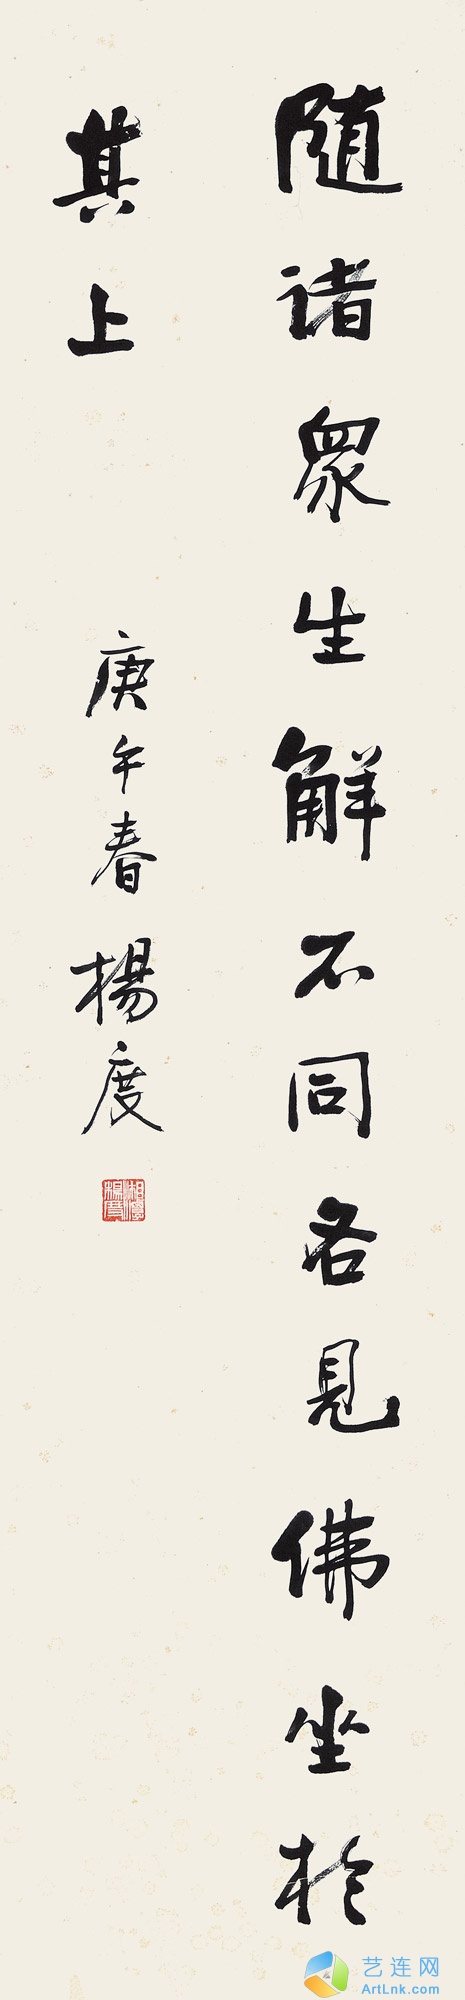 随诸衆生解不同各見佛坐於
其上
庚午春楊度
湘潭楊度
艺连网
ArtLnk.com